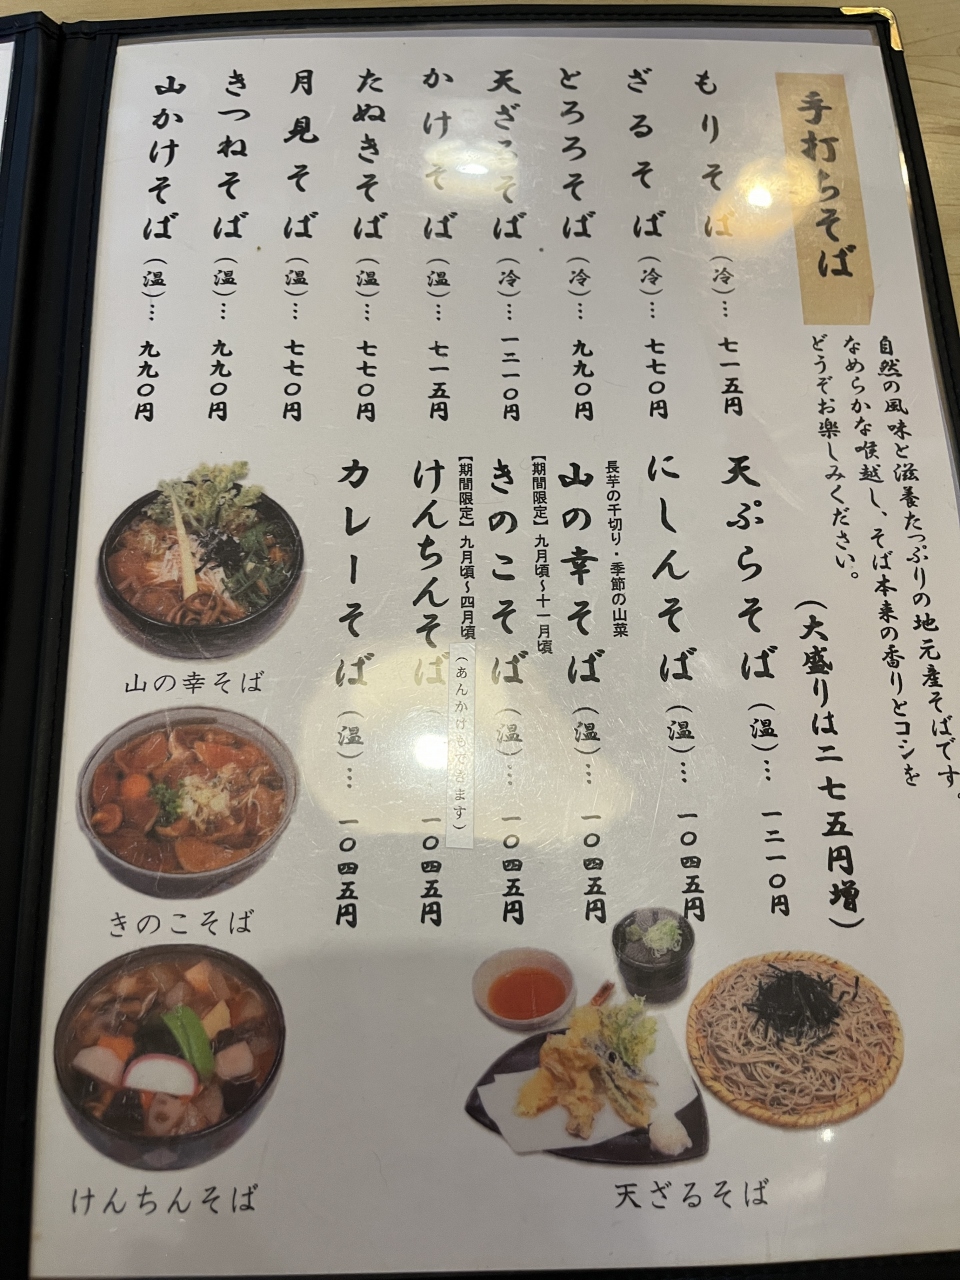 手打ちそば
自然の風味と滋養たっぷりの地元産そばです。
なめらかな喉越し、そば本来の香りとコシを
どうぞお楽しみください。
(大盛りは二七五円増)
もりそば(冷)… 七一五円
ざるそば(冷)… 七七〇円
とろろそば(冷)… 九九〇円
天ざるそば(冷)… 一二一〇円
かけそば(温)… 七一五円
たぬきそば(温)… 七七〇円
月見そば(温)… 七七〇円
きつねそば(温)… 九九〇円
山かけそば(温)… 九九〇円
天ぷらそば(温)… 一二一〇円
にしんそば(温)… 一〇四五円
長芋の千切り・季節の山菜
山の幸そば(温)… 一〇四五円
【期間限定】九月頃〜十一月頃
きのこそば(温)… 一〇四五円
【期間限定】九月頃〜四月頃(あんかけもできます)
けんちんそば 一〇四五円
カレーそば(温)… 一〇四五円
山の幸そば
きのこそば
けんちんそば
天ざるそば